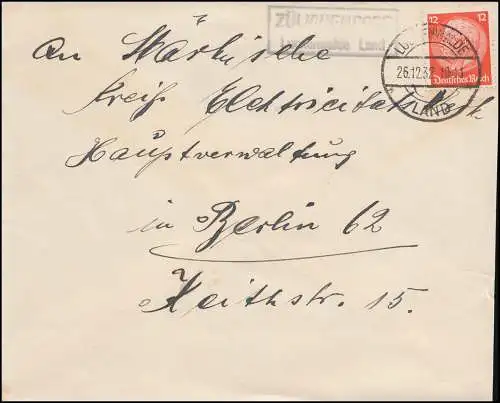 ZÜLICHENDORF
Luckenwalde Land
12 12
Deutsches Reich
LUCKENWALDE
26.12.32
LAND
An Märkische
Kreis Elektricitätswerk
Hauptverwaltung
in Berlin 62
Keithstr. 15.